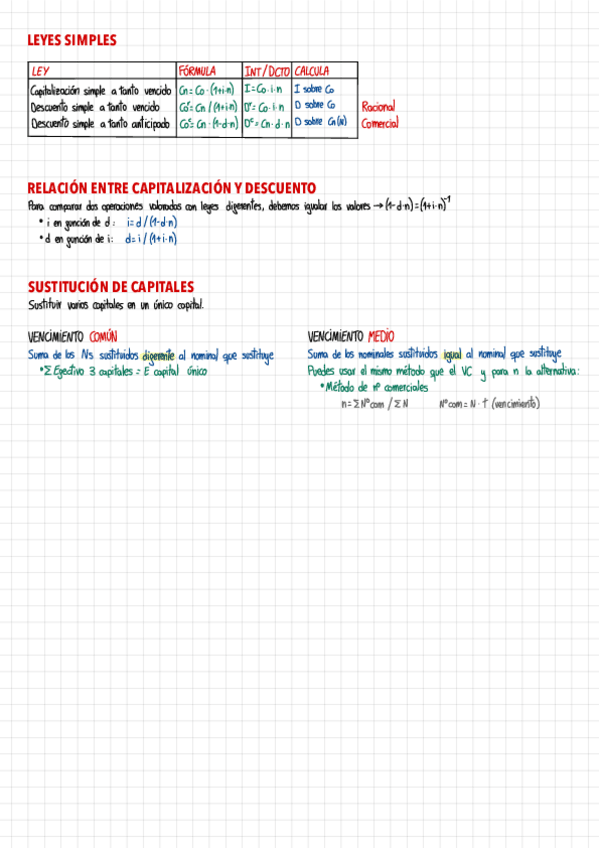 LEYES SIMPLES
LEY FÓRMULA INT/DCTO CALCULA
Capitalización simple a tanto vencido Cn = Co · (1+i·n) I = Co · i · n I sobre Co
Descuento simple a tanto vencido Co^r = Cn / (1+i·n) D^r = Co · i · n D sobre Co Racional
Descuento simple a tanto anticipado Co^c = Cn · (1-d·n) D^c = Cn · d · n D sobre Cn (N) Comercial
RELACIÓN ENTRE CAPITALIZACIÓN Y DESCUENTO
Para comparar dos operaciones valoradas con leyes diferentes, debemos igualar los valores → (1-d·n) = (1+i·n)^-1
• i en función de d: i = d / (1-d·n)
• d en función de i: d = i / (1+i·n)
SUSTITUCIÓN DE CAPITALES
Sustituir varios capitales en un único capital.
VENCIMIENTO COMÚN
Suma de los Ns sustituidos diferente al nominal que sustituye
• Σ Efectivo 3 capitales = E capital único
VENCIMIENTO MEDIO
Suma de los nominales sustituidos igual al nominal que sustituye
Puedes usar el mismo método que el VC y para n la alternativa:
• Método de nº comerciales
n = Σ Nºcom / Σ N Nºcom = N · t (vencimiento)